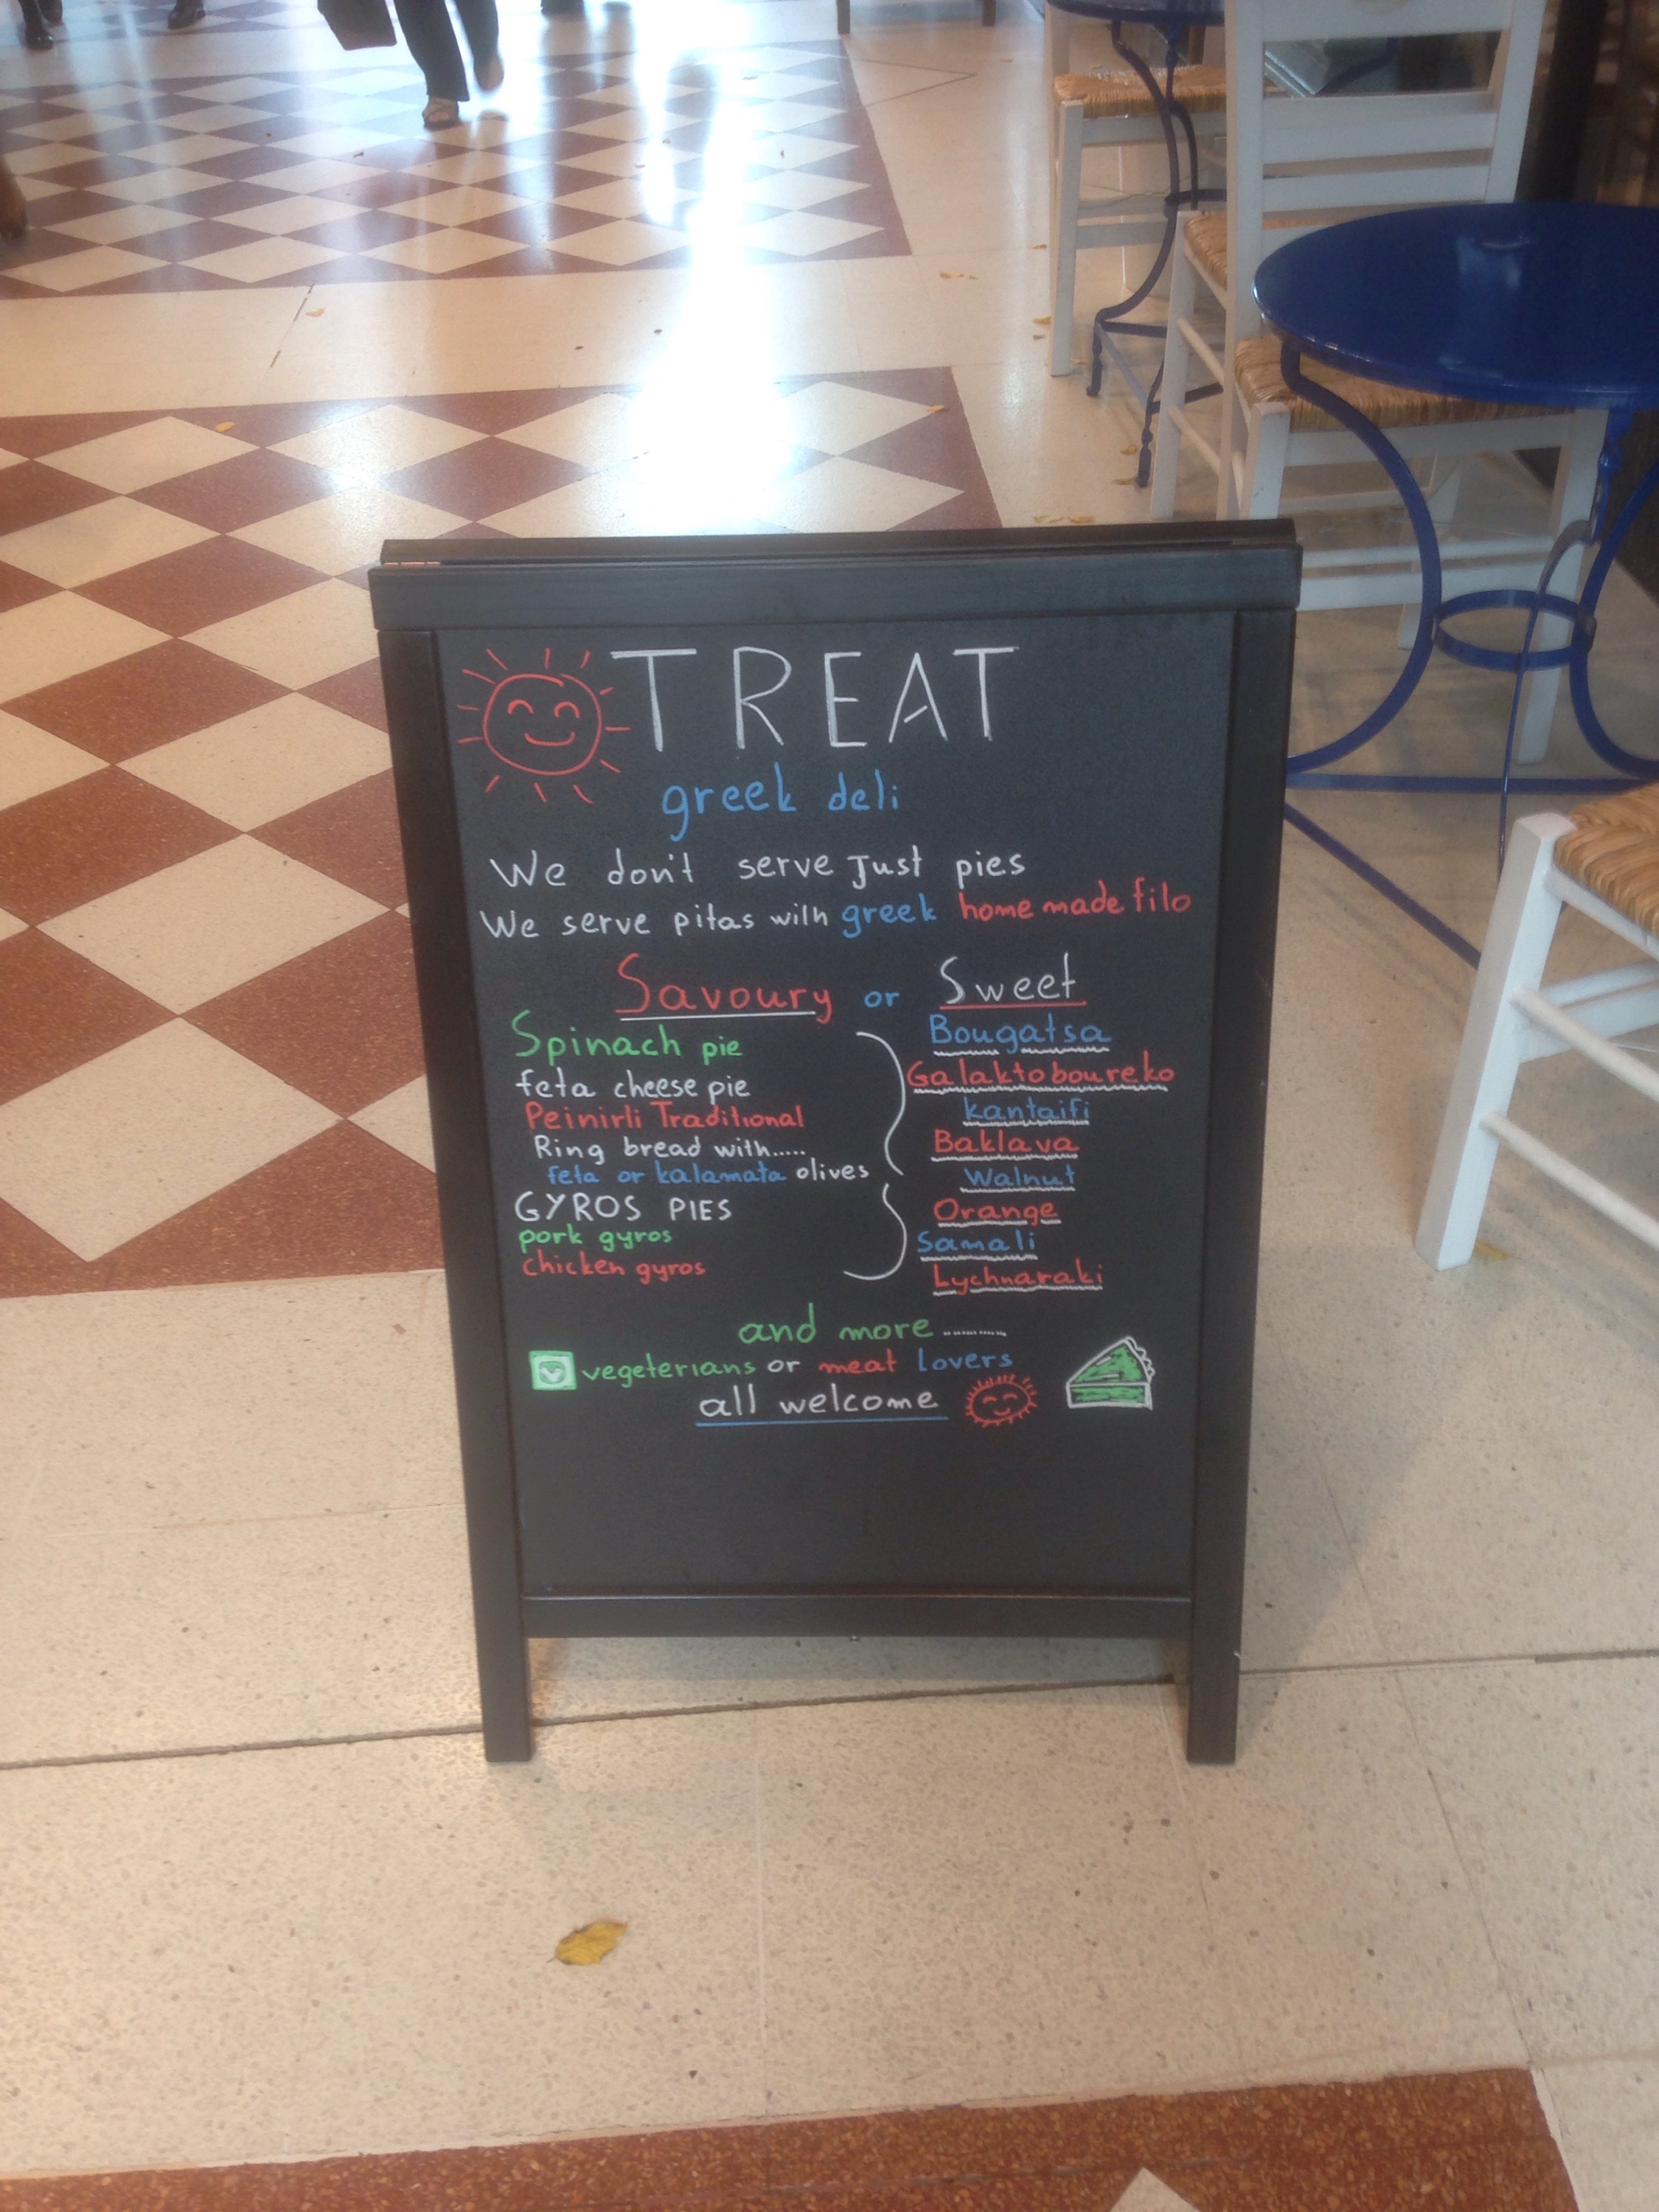 TREAT
greek deli
We don't serve just pies
We serve pitas with greek home made filo
Savoury or Sweet
Spinach pie
feta cheese pie
Peinirli Traditional
Ring bread with.....
feta or kalamata olives
GYROS PIES
pork gyros
chicken gyros
Bougatsa
Galaktoboureko
kantaifi
Baklava
Walnut
Orange
Samali
Lychnaraki
and more...........
vegeterians or meat lovers
all welcome